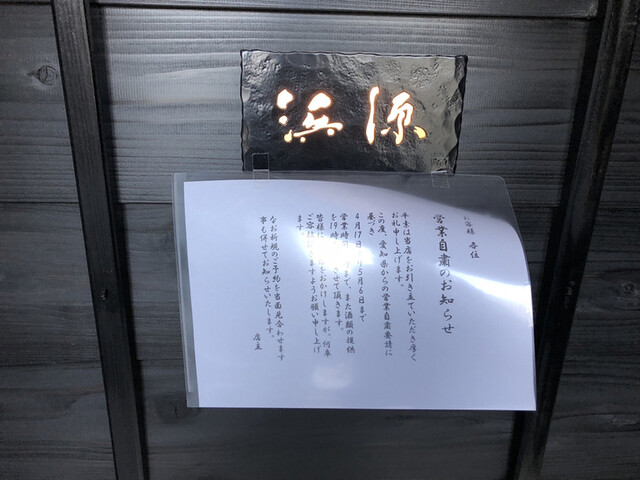 浜源
お客様 各位
営業自粛のお知らせ
平素は当店をお引き立ていただき厚く
お礼申し上げます。
この度、愛知県からの営業自粛要請に
基づき、
4月17日 5月6日まで
営業時間 まで、また酒類の提供
を19時 させて頂きます。
皆様に をおかけしますが、何卒
ご容 ますようお願い申し上げ
ます。
なお新規のご予約を当面見合わせます
事も併せてお知らせいたします。
店主